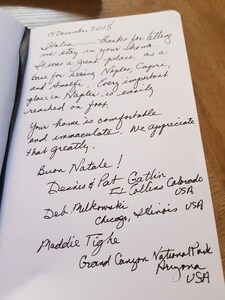 December 2018
thanks for letting
us stay in your home.
It was a great place as a
base for seeing Naples, Capri,
and Amalfi. Every important
place in Naples is easily
reached on foot.
Your home is comfortable
and immaculate. We appreciate
that greatly.
Buon Natale!
Dennis & Pat Gatlin
Ft Collins Colorado
USA
Deb
Chicago, Illinois USA
Maddie Tighe
Grand Canyon National Park
Arizona
USA